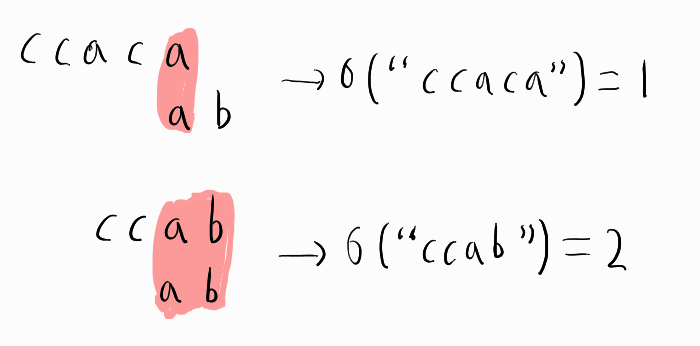 c c a c a
a b
→ σ("ccaca") = 1
c c a b
a b
→ σ("ccab") = 2